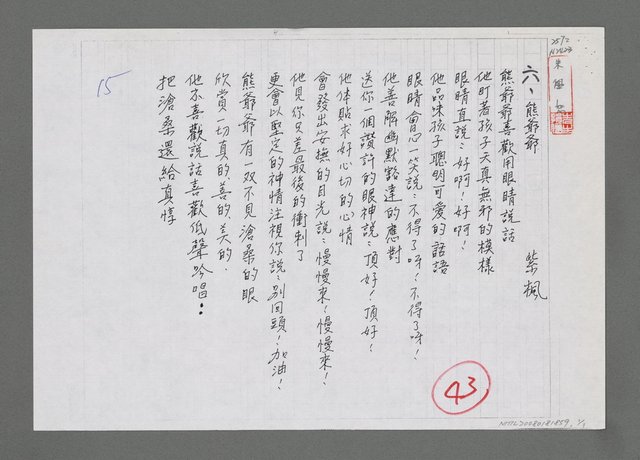 六、熊爺爺
紫楓
熊爺爺喜歡用眼睛說話
他盯著孩子天真無邪的模樣
眼睛直說：好啊！好啊！
他品味孩子聰明可愛的話語
眼睛會心一笑說：不得了呀！不得了呀！
他善解幽默豁達的應對
送你一個讚許的眼神說：頂好！頂好！
他体貼求好心切的心情
會發出安撫的目光說：慢慢來！慢慢來！
他見你只差最後的衝刺了
更會以堅定的神情注視你說：別回頭！加油！
熊爺爺有一双不見滄桑的眼
欣賞一切真的、善的、美的、
他亦喜歡說話喜歡低聲吟唱：
把滄桑還給真惇
15
43
NMTL20080181859, 1/1